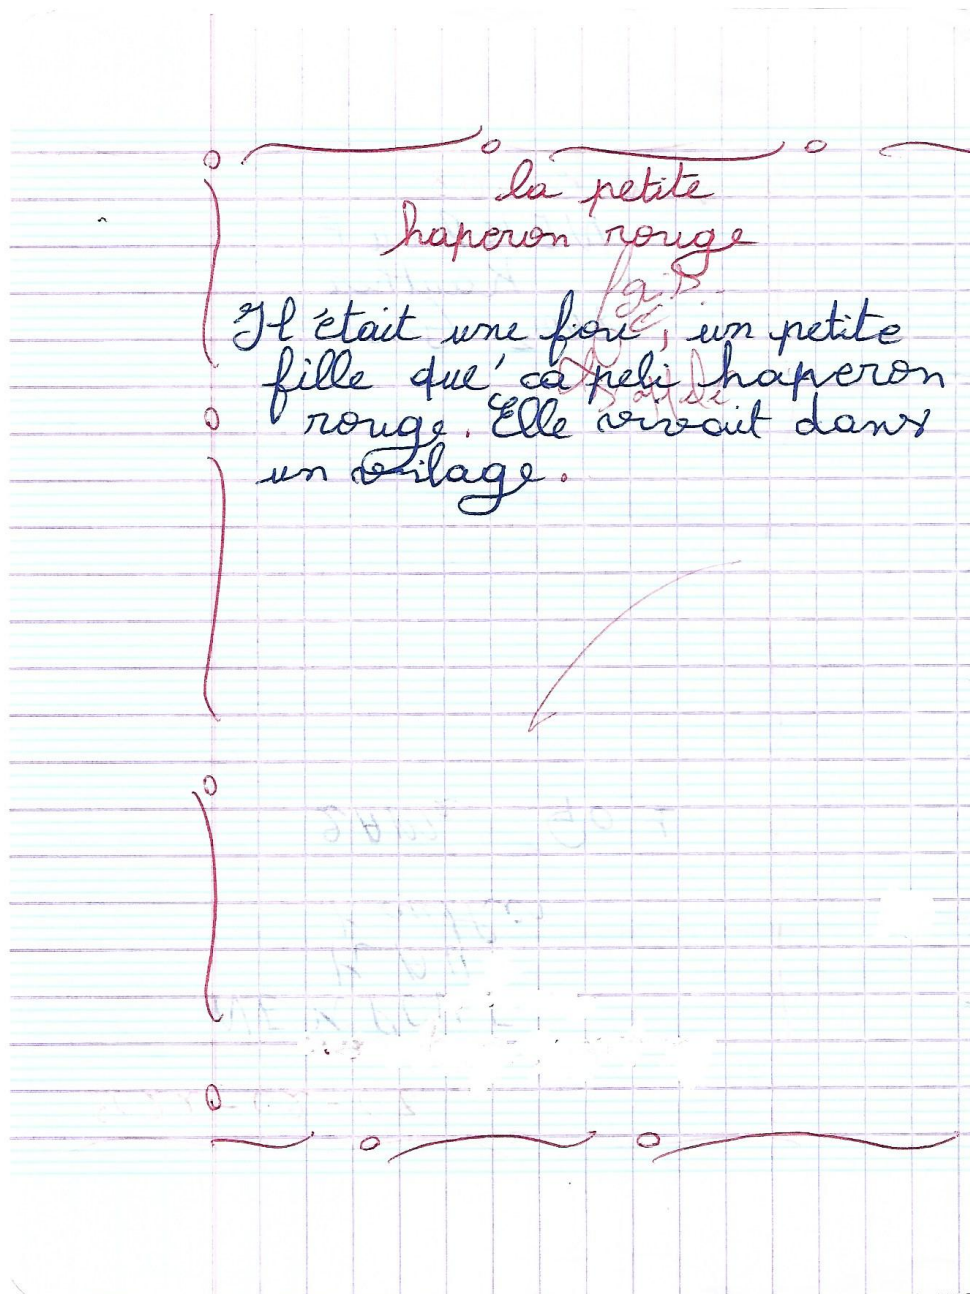 la petite
haperon rouge
fois
Il était une foie, un petite
fille que' ca peli haperon
rouge. Elle vivait dans
un vilage.